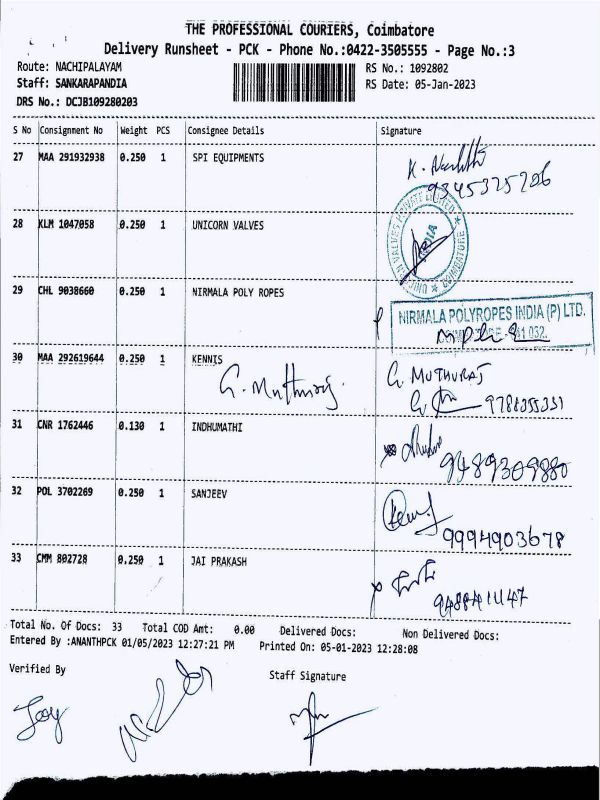 THE PROFESSIONAL COURIERS, Coimbatore
Delivery Runsheet - PCK - Phone No.:0422-3505555 - Page No.:3
Route: NACHIPALAYAM
RS No.: 1092802
Staff: SANKARAPANDIA
RS Date: 05-Jan-2023
DRS No.: DCJB109280203
S No Consignment No Weight PCS Consignee Details Signature
27 MAA 291932938 0.250 1 SPI EQUIPMENTS
9345325206
28 KLM 1047058 0.250 1 UNICORN VALVES
29 CHL 9038660 0.250 1 NIRMALA POLY ROPES
NIRMALA POLYROPES INDIA (P) LTD.
30 MAA 292619644 0.250 1 KENNIS
G. Muthuraj.
G. MUTHURAJ
31 CNR 1762446 0.130 1 INDHUMATHI
9489309880
32 POL 3702269 0.250 1 SANJEEV
9994903678
33 CMM 802728 0.250 1 JAI PRAKASH
Total No. Of Docs: 33 Total COD Amt: 0.00 Delivered Docs: Non Delivered Docs:
Entered By :ANANTHPCK 01/05/2023 12:27:21 PM Printed On: 05-01-2023 12:28:08
Verified By
Staff Signature
Joy